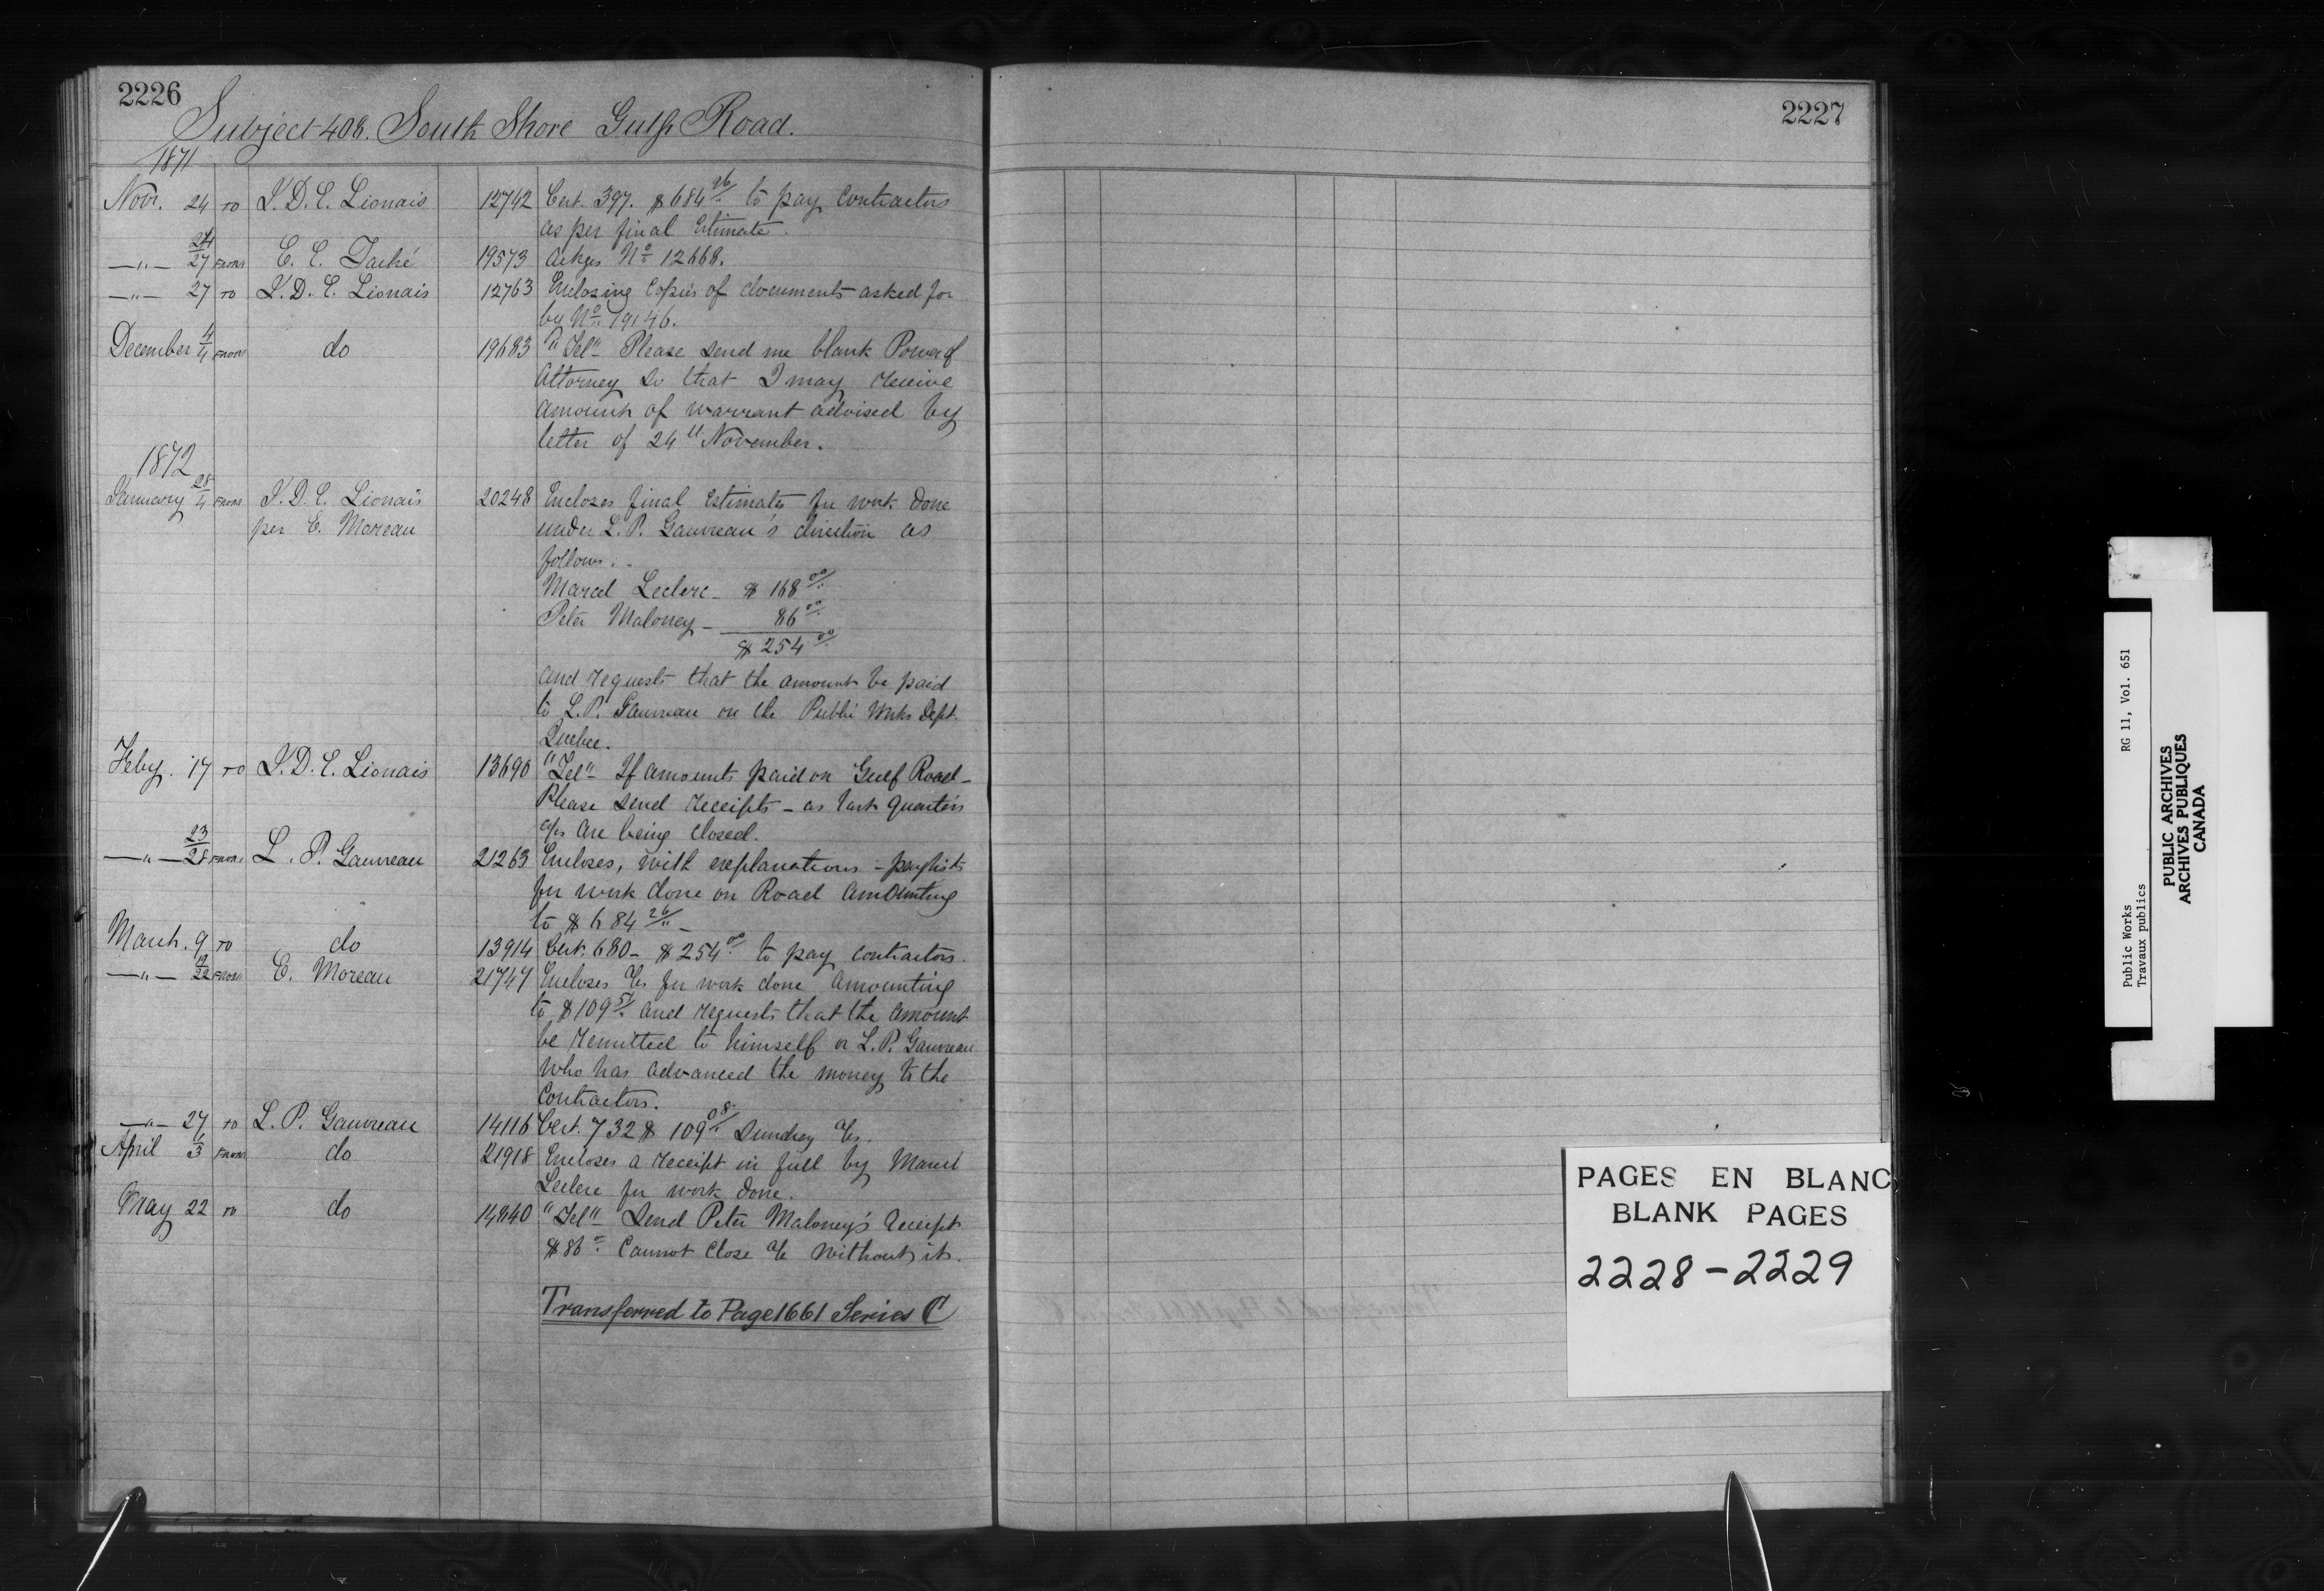 2226
Subject 406. South Shore Gulf Road.
1871
Novr. 24 TO L.D.C. Lionais 12742 Cert. 397. $684 26/". to pay contractors
as per final Estimate.
—"— 24/27 FROM E. C. Taché 19573 Ackges No 12668.
—"— 27 TO L.D.C. Lionais 12763 Enclosing Copies of documents asked for
by No. 19146.
December 4/4 FROM do 19683 "Tel" Please send me blank Power of
Attorney so that I may receive
amount of warrant advised by
letter of 24th November.
1872
January FROM L.D.C. Lionais 20248 Encloses final Estimates for work done
per E. Moreau under L. P. Gauvreau's direction as
follows:-
Marcel Leclerc - $ 168 00/".
Peter Maloney - 86 00/".
$ 254 00/".
and requests that the amount be paid
to L.P. Gauvreau on the Public Works Dept.
Quebec.
Feby. 17 TO L.D.C. Lionais 13690 "Tel" If amounts paid on Gulf Road -
Please send receipts - as last quarter's
a/cs are being closed.
—"— 23/28 FROM L. P. Gauvreau 21263 Encloses, with explanations - paylists
for work done on Road amounting
to $ 684 26/" -
March. 9 TO do 13914 Cert. 680 - $254 00/". to pay contractors.
—"— 19/22 FROM E. Moreau 21747 Encloses a/cs for work done amounting
to $109 and requests that the amount
be remitted to himself or L.P. Gauvreau
who has advanced the money to the
Contractors.
—"— 27 TO L. P. Gauvreau 14116 Cert. 732 $ 109 08/". Sundry a/cs.
April 3 FROM do 21918 Encloses a receipt in full by Marcel
Leclerc for work done.
May 22 TO do 14840 "Tel" Send Peter Maloney's receipt
$86 ". Cannot close a/c without it.
Transferred to Page 1661 Series C
2227
PAGES EN BLANC
BLANK PAGES
2228-2229
Public Works RG 11, Vol. 651
Travaux publics
PUBLIC ARCHIVES
ARCHIVES PUBLIQUES
CANADA